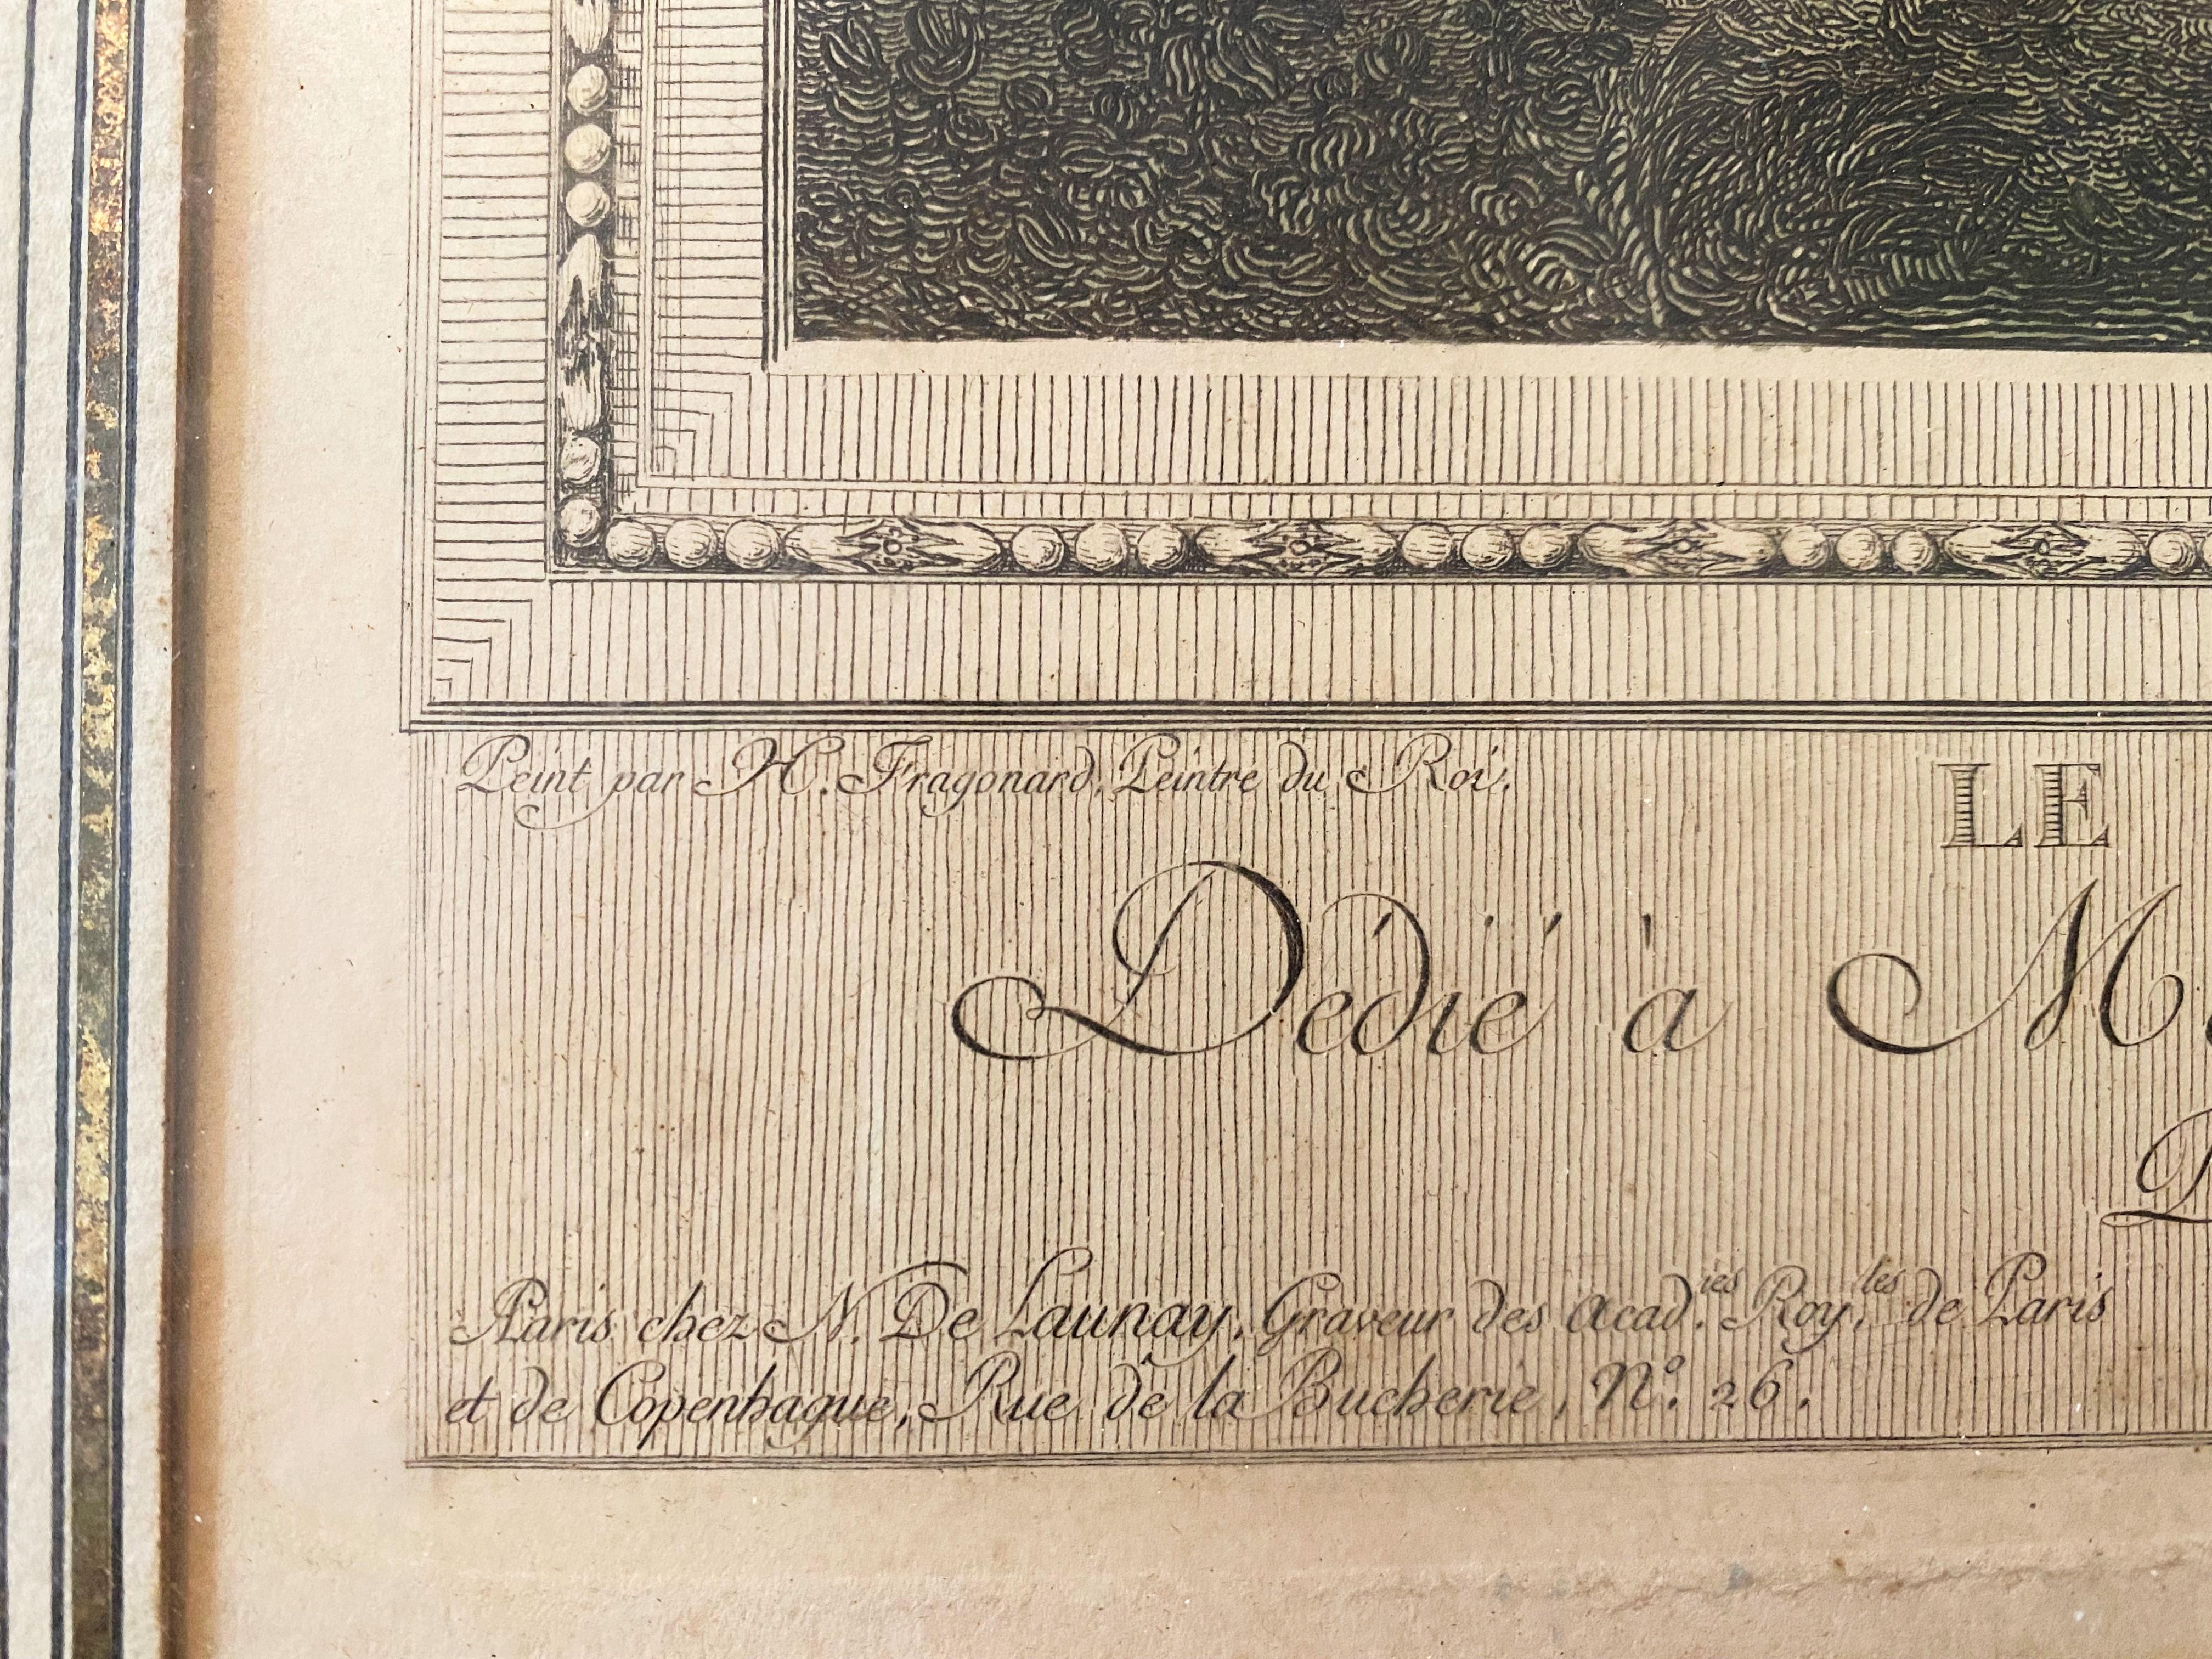 Peint par H. Fragonard, Peintre du Roi.
LE
Dédié à M
AParis chez N. De Launay, Graveur des Acad.ies Roy.les de Paris
et de Copenhague, Rue de la Bucherie, N.° 26.